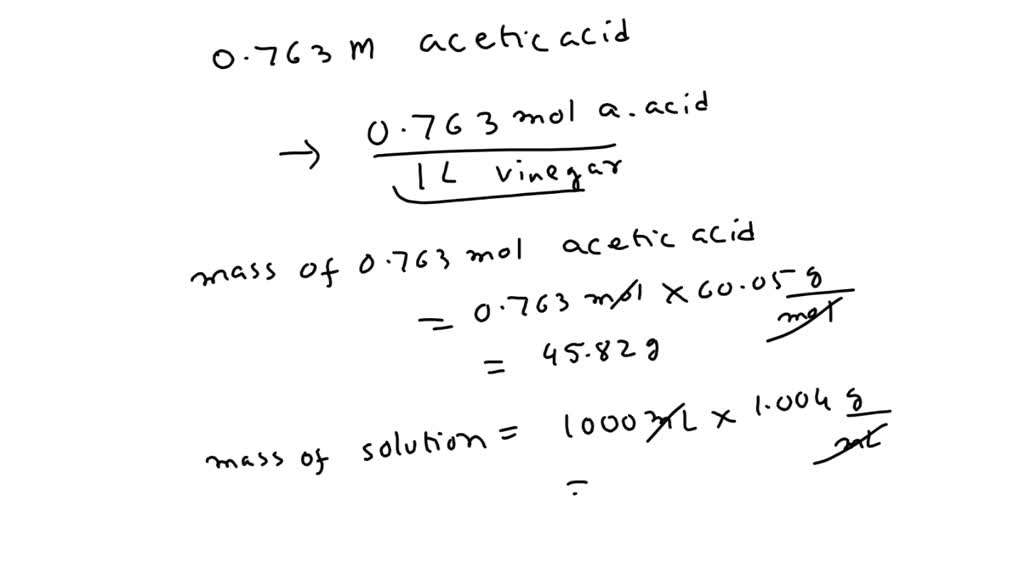 0.763 M acetic acid
→ 0.763 mol a. acid
1 L vinegar
mass of 0.763 mol acetic acid
= 0.763 mol × 60.05 g
mol
= 45.82 g
mass of solution = 1000 mL × 1.004 g
mL
=